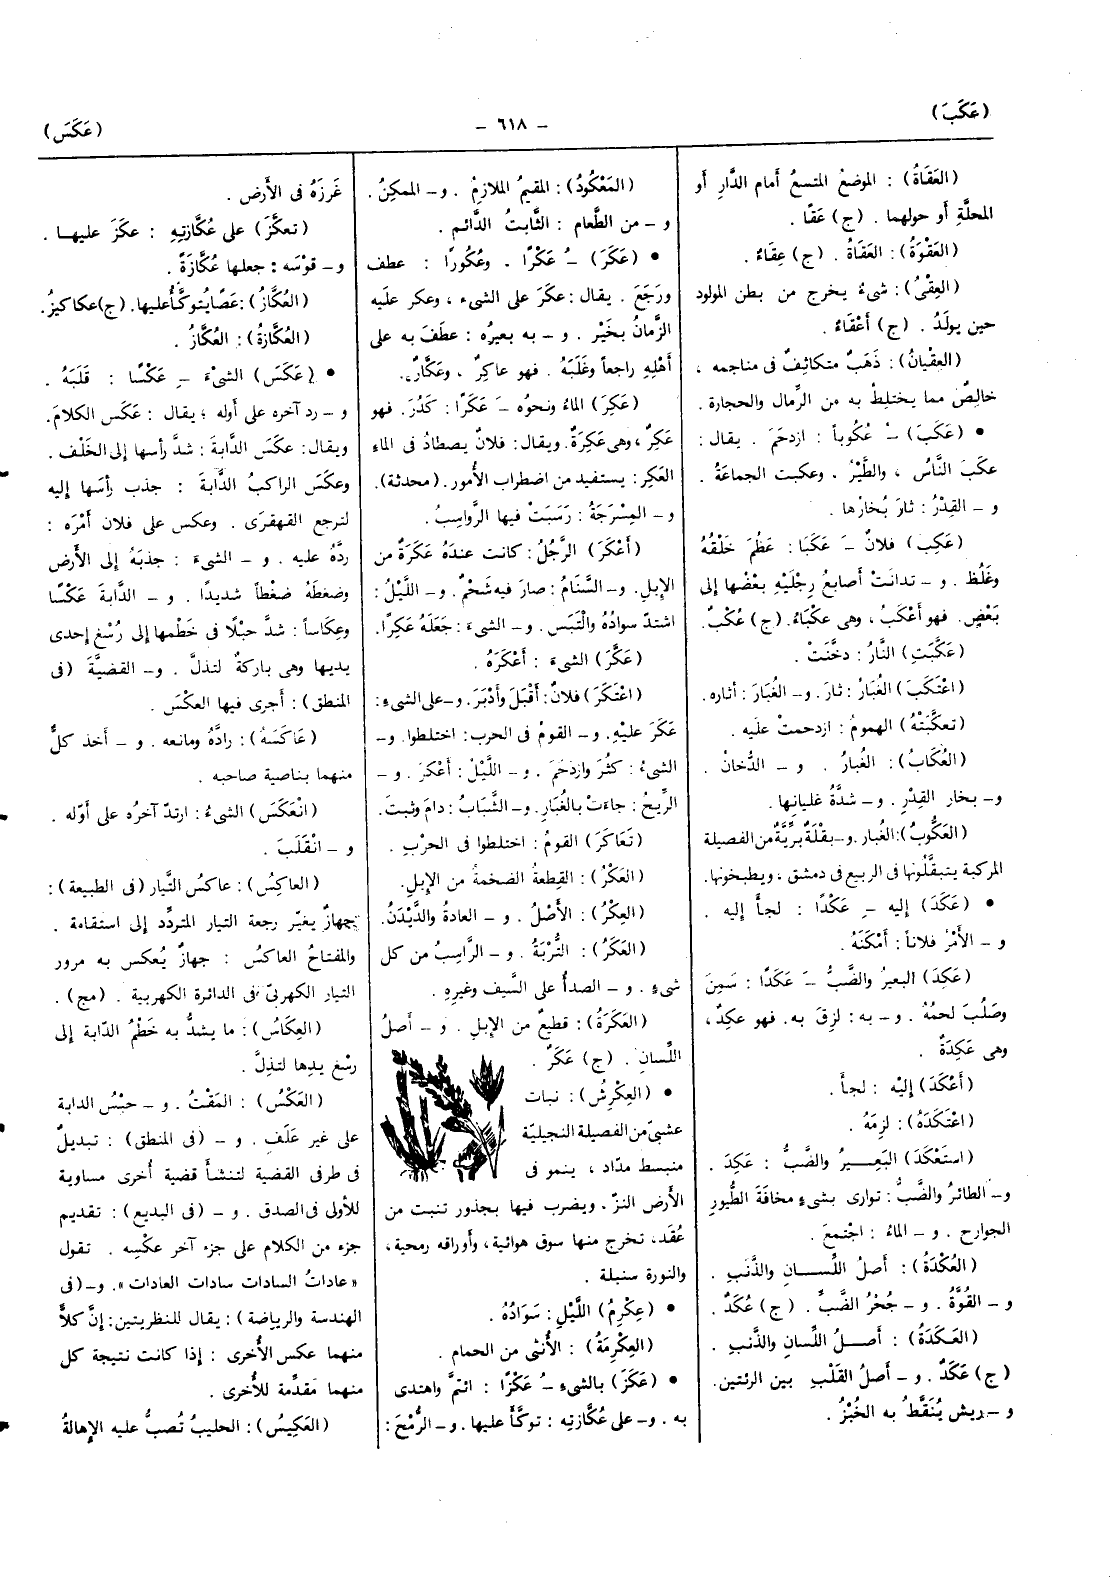 (عَكَبَ)
- ٦١٨ -
(عَكَسَ)
(العَقَاةُ) : الموضعُ المتسعُ أمام الدَّارِ أو
المحلَّةِ أو حولهما . (ج) عَقًا .
(العَقْوَةُ) : العَقَاةُ . (ج) عِقَاءٌ .
(العِقْىُ) : شىءٌ يخرج من بطن المولود
حين يولَدُ . (ج) أَعْقَاءٌ .
(العِقْيانُ) : ذَهَبٌ متكاثِفٌ فى مناجمه ،
خالِصٌ مما يختلِطُ به من الرِّمال والحجارة .
• (عَكَبَ) ـُ عُكُوباً : ازدحَمَ . يقال :
عكَبَ النَّاسُ ، والطَّيْرُ . وعكبت الجماعَةُ .
و ـ القِدْرُ : ثارَ بُخارُها .
(عَكِبَ) فلانٌ ـَ عَكَبًا : عَظُمَ خَلْقُهُ
وغَلُظ . و ـ تدانَتْ أصابعُ رِجْلَيْهِ بعْضُها إلى
بَعْضٍ . فهو أَعْكَبُ ، وهى عكْبَاءُ. (ج) عُكْبٌ.
(عَكَّبَتِ) النَّارُ : دخَّنَتْ .
(اعْتكَبَ) الغُبَارُ : ثارَ . و ـ الغُبَارَ : أثاره .
(تعكَّبَتْهُ) الهمومُ : ازدحمتْ علَيه .
(العُكَابُ) : الغُبارُ . و ـ الدُّخانُ .
و ـ بخار القِدْرِ . و ـ شدَّةُ غليانِها .
(العَكُوبُ): الغُبار . و ـ بقْلَةٌ بَرِّيَّةٌ من الفصيلة
المركبة يتبقَّلونها فى الربيع فى دمشق ، ويطبخونها.
• (عَكَدَ) إليه ـِ عَكْدًا : لجأَ إليه .
و ـ الأَمْرُ فلاناً : أَمْكَنَهُ .
(عَكِدَ) البعيرُ والضَّبُّ ـَ عَكَدًا : سَمِنَ
وصَلُبَ لحمُهُ . و ـ به : لزِقَ به. فهو عكِدٌ ،
وهى عَكِدَةٌ .
(أَعْكَدَ) إليْه : لجأَ .
(اعْتَكَدَهُ) : لزِمَهُ .
(استَعْكَدَ) البَعِيرُ والضَّبُّ : عَكِدَ .
و ـ الطائرُ والضَّبُّ : توارى بشىءٍ مخافَةَ الطُّيورِ
الجوارح . و ـ الماءُ : اجْتمعَ .
(العُكْدَةُ) : أصلُ اللِّسان والذَّنَبِ .
و ـ القُوَّةُ . و ـ جُحْرُ الضَّبِّ . (ج) عُكَدٌ .
(العَكَدَةُ) : أصلُ اللِّسان والذَّنبِ .
(ج) عَكَدٌ . و ـ أصلُ القَلْبِ بين الرئتين.
و ـ ريش يُنَقَّطُ به الخُبْزُ .
(المَعْكُودُ) : المقيمُ الملازِمُ . و ـ الممكِنُ .
و ـ من الطَّعام : الثَّابتُ الدَّائم .
• (عَكَرَ) ـُ عَكْرًا . وعُكُورًا : عطف
ورَجَعَ . يقال : عكَرَ على الشىء ، وعكر علَيه
الزَّمانُ بخَيْر . و ـ به بعيرُه : عطَفَ به على
أهْلِهِ راجعاً وغَلَبَهُ . فهو عاكِرٌ ، وعَكَّارٌ.
(عَكِرَ) الماءُ ونحوُه ـَ عَكَرًا : كَدُرَ. فهو
عَكِرٌ ، وهى عَكِرَةٌ. ويقال: فلانٌ يصطادُ فى الماءِ
العكِرِ : يستفيد من اضطراب الأُمور. (محدثة).
و ـ المِسْرَجَةُ : رَسَبَتْ فيها الرَّواسِبُ.
(أَعْكَرَ) الرَّجُلُ : كانت عندَهُ عَكَرَةٌ من
الإِبلِ. و ـ السَّنَامُ : صار فيه شَحْمٌ. و ـ اللَّيْلُ :
اشتدّ سوادُهُ والْتَبَس. و ـ الشىءَ : جَعَلَهُ عَكِرًا.
(عَكَّرَ) الشىءَ : أَعْكَرَهُ .
(اعْتَكَرَ) فلانٌ: أَقْبَلَ وأَدْبَرَ. و ـ على الشىءِ:
عَكَرَ علَيْهِ. و ـ القومُ فى الحرب: اختلطوا. و ـ
الشىءُ : كثُرَ وازدحَمَ . و ـ اللَّيْلُ : أَعْكَرَ. و ـ
الرِّيحُ : جاءَتْ بالغُبَارِ. و ـ الشَّبَابُ : دامَ وثبتَ.
(تَعَاكَرَ) القومُ : اختلطوا فى الحرْبِ .
(العَكْرُ) : القِطعةُ الضخمةُ من الإِبلِ.
(العِكْرُ) : الأَصْلُ . و ـ العادةُ والدَّيْدَنُ.
(العَكَرُ) : التُّرْبَةُ . و ـ الرَّاسِبُ من كل
شىءٍ . و ـ الصدأُ على السَّيف وغيرِهِ .
(العَكَرَةُ) : قطيعٌ من الإِبلِ . و ـ أَصلُ
اللِّسانِ . (ج) عَكَرٌ .
• (العِكْرِشُ) : نبات
عشبىّ من الفصيلة النجيليّة
منبسط مدّاد ، ينمو فى
الأَرض النزّ . ويضرب فيها بجذور تنبت من
عُقَد، تخرج منها سوق هوائية، وأوراقه رمحية،
والنورة سنبلة .
• (عِكْرِمُ) اللَّيْلِ : سَوَادُهُ .
(العِكْرِمَةُ) : الأُنثى من الحمام .
• (عَكَزَ) بالشىءِ ـُ عَكْزًا : ائتمَّ واهتدى
به . و ـ على عُكَّازتِه : توكَّأَ عليها . و ـ الرُّمْحَ :
غَرزَهُ فى الأَرض .
(تعكَّزَ) على عُكَّازتِهِ : عكزَ عليها .
و ـ قوْسَه : جعلها عُكَّازَةً .
(العُكَّازُ) : عَصًا يُتوكَّأُ عليها. (ج) عكاكيزُ.
(العُكَّازةُ) : العُكَّازُ .
• (عَكَسَ) الشىءَ ـِ عَكْسًا : قَلَبَهُ .
و ـ رد آخره على أوله ؛ يقال : عَكَس الكلامَ.
ويقال: عكَسَ الدَّابةَ : شدَّ رأسها إلى الخَلْف .
وعكَسَ الراكبُ الدَّابةَ : جذب رأسَها إليه
لترجع القهقرَى . وعكس على فلان أَمْرَه :
ردَّهُ عليه . و ـ الشىءَ : جذبَهُ إلى الأَرض
وضغطَهُ ضغْطاً شديدًا . و ـ الدَّابةَ عَكْسًا
وعِكاساً : شدَّ حبْلًا فى خَطْمِها إلى رُسْغِ إحدى
يديها وهى باركةٌ لتذلَّ . و ـ القضيَّةَ (فى
المنطق) : أجرى فيها العكْسَ .
(عَاكَسَهُ) : رادَّهُ ومانعه . و ـ أخذ كلٌّ
منهما بناصية صاحبه .
(انْعَكَسَ) الشىءُ : ارتدّ آخرُه على أوّله .
و ـ انْقَلَبَ .
(العاكِسُ) : عاكس التَّيار (فى الطبيعة) :
جهازٌ يغيّر رجعة التيار المتردِّد إلى استقامة .
والمفتاحُ العاكسُ : جهازٌ يُعكس به مرور
التيار الكهربىّ فى الدائرة الكهربية . (مج) .
(العِكَاسُ) : ما يشدُّ به خَطْمُ الدّابة إلى
رسْغ يدِها لتذِلَّ .
(العَكْسُ) : المَقْتُ . و ـ حبْسُ الدابة
على غير علَفٍ . و ـ (فى المنطق) : تبديلٌ
فى طرفى القضية لتنشأَ قضية أُخرى مساوية
للأولى فى الصدق . و ـ (فى البديع) : تقديم
جزء من الكلام على جزء آخر عكْسِه . تقول
«عاداتُ السادات سادات العادات». و ـ (فى
الهندسة والرياضة) : يقال للنظريتين: إنَّ كلاًّ
منهما عكس الأُخرى : إذا كانت نتيجة كل
منهما مقدِّمة للأُخرى .
(العَكِيسُ) : الحليبُ تُصبُّ عليه الإِهالةُ